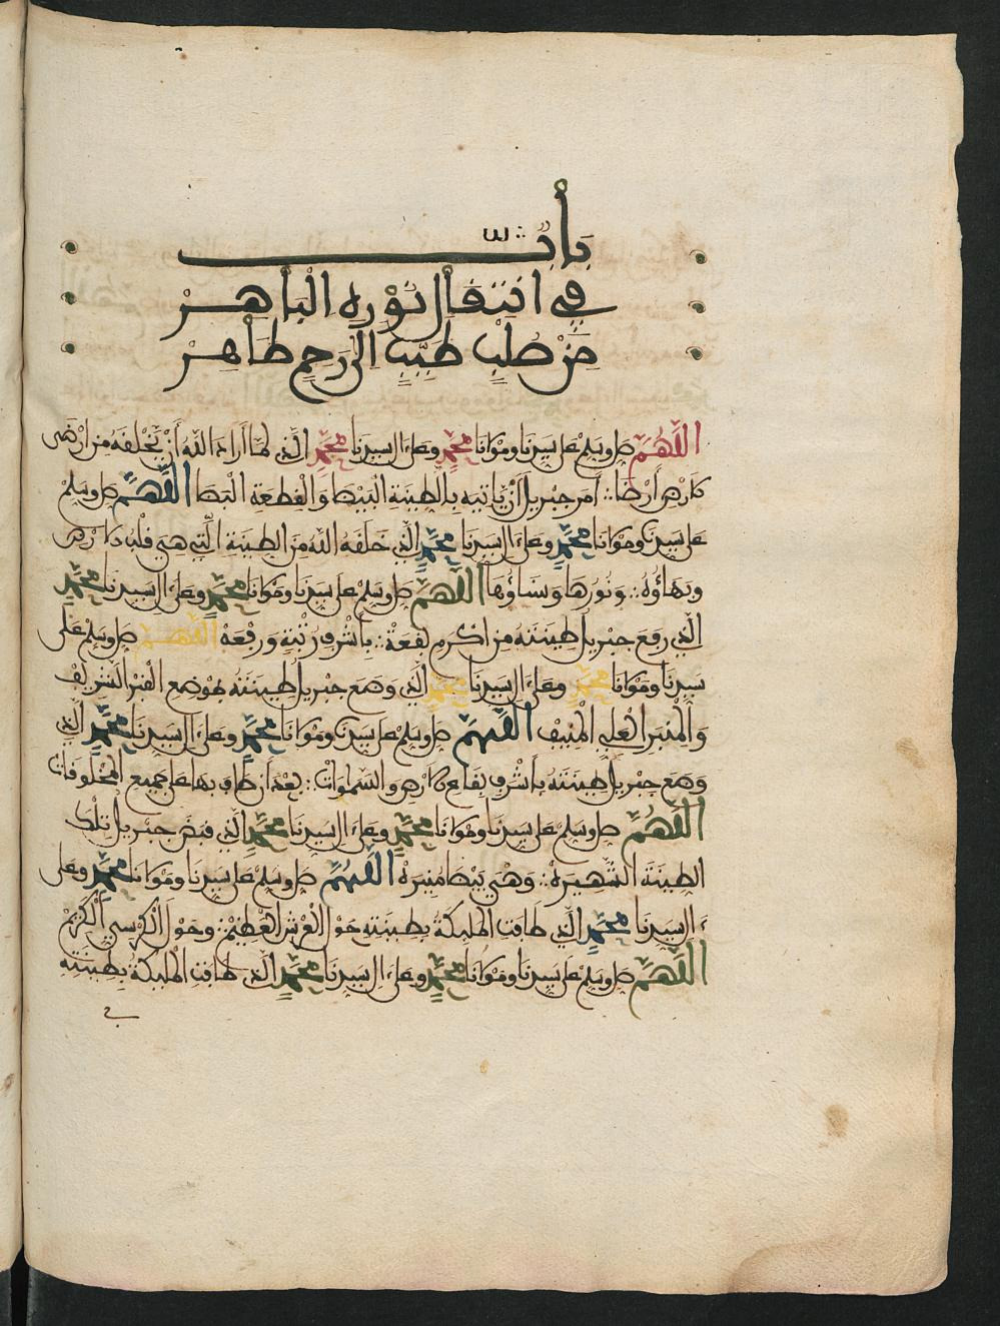 بَابٌ
في انتقال نوره الباهر
من صُلْبٍ طيبٍ الى رحمٍ طاهر
اللهم صل وسلم على سيدنا ومولانا محمد وعلى ءال سيدنا محمد الذي لما أراد الله أن يخلقه من ارض
كارض أرضا أمر جبريل أن ياتيه بالطينة البيضا والقطعة اللهم صل وسلم
على سيدنا ومولانا محمد وعلى ءال سيدنا محمد الذي خلقه الله من الطينة التي هي قلب الارض
وبهاؤه ونورها وسناؤها اللهم صل وسلم على سيدنا ومولانا محمد وعلى ءال سيدنا محمد
الذي رفع جبريل طينته من اكرم بقعة باشرف رتبة ورفعة اللهم صل وسلم على
سيدنا ومولانا محمد وعلى ءال سيدنا محمد الذي وضع جبريل طينته بموضع القبر الشريف
والمنبر العلي المنيف اللهم صل وسلم على سيدنا ومولانا محمد وعلى ءال سيدنا محمد الذي
وضع جبريل طينته باشرف بقاع الارض والسموات بعد ان طاف بها على جميع المخلوقات
اللهم صل وسلم على سيدنا ومولانا محمد وعلى ءال سيدنا محمد الذي قبض جبريل تلك
الطينة الشهيرة وهي بيضا منيرة اللهم صل وسلم على سيدنا ومولانا محمد وعلى
ءال سيدنا محمد الذي طافت الملئكة بطينته حول العرش العظيم وحول الكرسي الكريم
اللهم صل وسلم على سيدنا ومولانا محمد وعلى ءال سيدنا محمد الذي طافت الملئكة بطينته
في